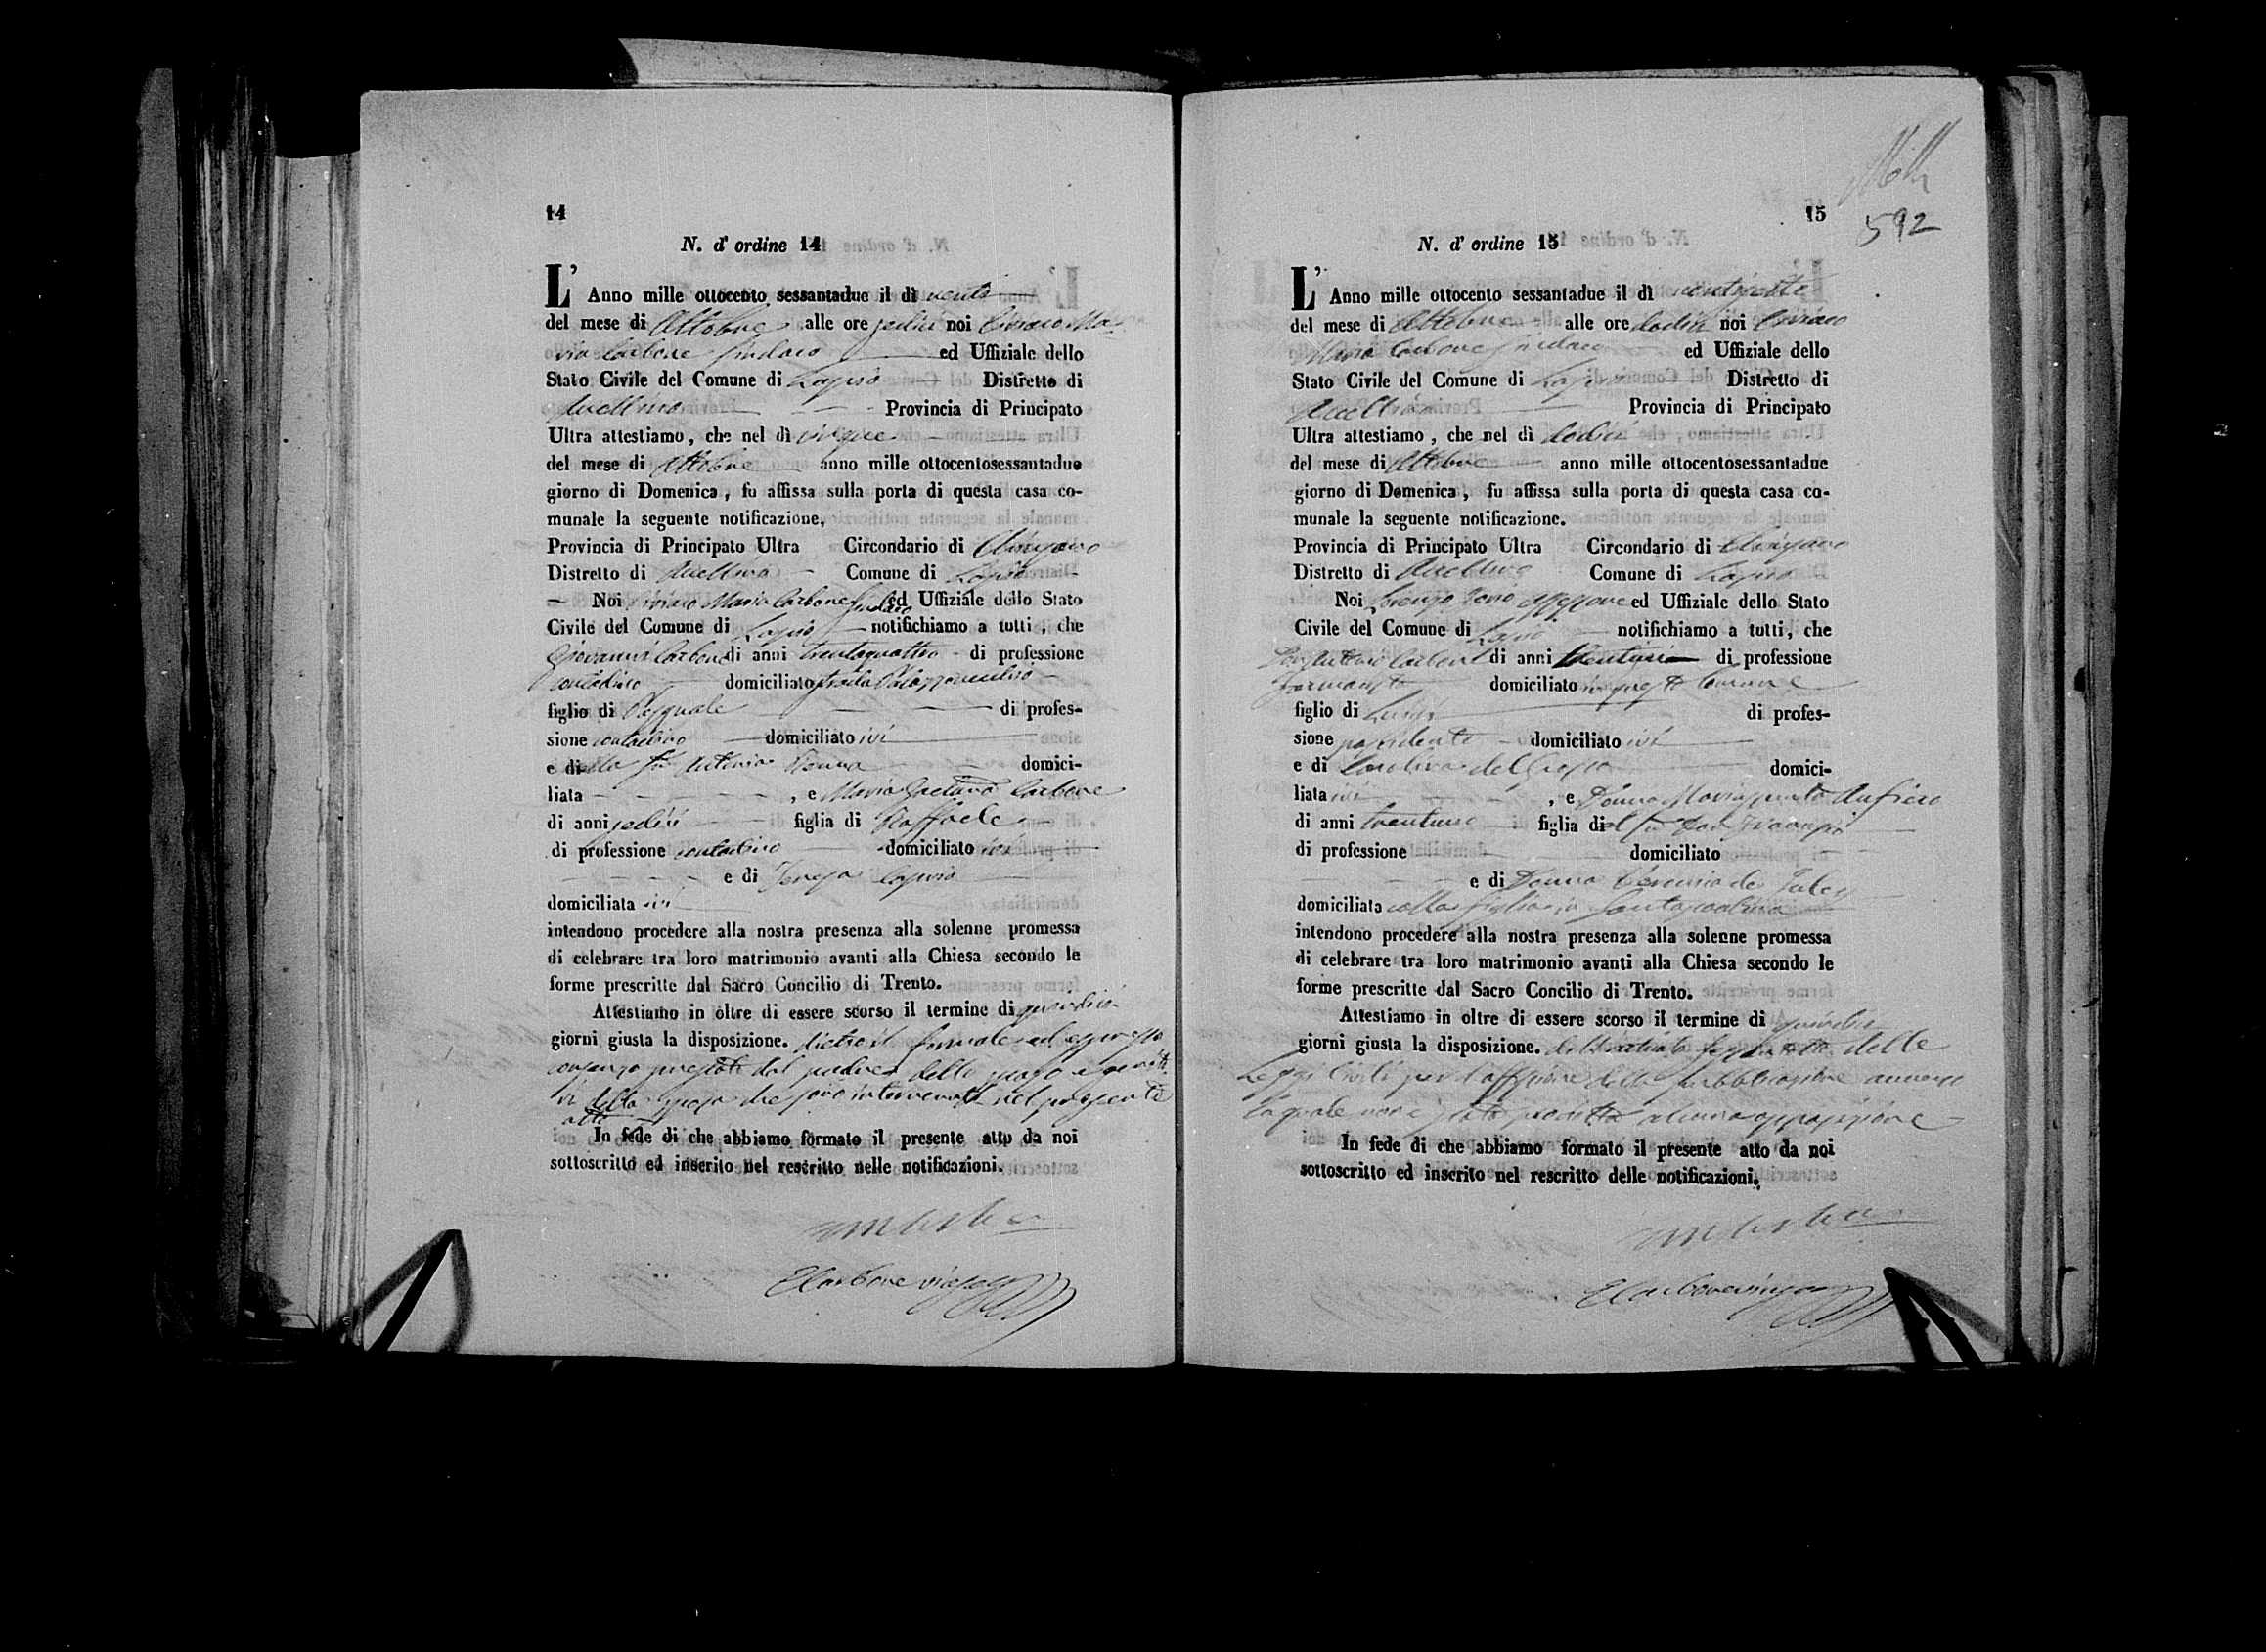 14
N. d' ordine 14
L' Anno mille ottocento sessantadue il dì venti
del mese di Ottobre alle ore sedici noi Ciriaco Ma-
ria Carbone Sindaco ed Uffiziale dello
Stato Civile del Comune di Lapio Distretto di
Avellino Provincia di Principato
Ultra attestiamo, che nel dì cinque
del mese di Ottobre anno mille ottocentosessantadue
giorno di Domenica, fu affissa sulla porta di questa casa co-
munale la seguente notificazione,
Provincia di Principato Ultra Circondario di Chiusano
Distretto di Avellino Comune di Lapio
Noi Ciriaco Maria Carbone Sindaco ed Uffiziale dello Stato
Civile del Comune di Lapio notifichiamo a tutti, che
Giovanni Carbone di anni trentaquattro di professione
contadino domiciliato strada
figlio di Pasquale di profes-
sione contadino domiciliato ivi
e della fu Antonia domici-
liata , e Maria Gaetana Carbone
di anni sedici figlia di Raffaele
di professione contadino domiciliato ivi
e di Teresa Caprio
domiciliata ivi
intendono procedere alla nostra presenza alla solenne promessa
di celebrare tra loro matrimonio avanti alla Chiesa secondo le
forme prescritte dal Sacro Concilio di Trento.
Attestiamo in oltre di essere scorso il termine di quindici
giorni giusta la disposizione. dietro il formale ed espresso
consenso prestato dal padre dello sposo e genito-
ri della sposa che sono intervenuti nel presente
atto
In fede di che abbiamo formato il presente atto da noi
sottoscritto ed inserito nel rescritto nelle notificazioni.
Carbone
15
592
N. d' ordine 15
L' Anno mille ottocento sessantadue il dì ventisette
del mese di Ottobre alle ore dodici noi Ciriaco
Maria Carbone Sindaco ed Uffiziale dello
Stato Civile del Comune di Lapio Distretto di
Avellino Provincia di Principato
Ultra attestiamo, che nel dì dodici
del mese di Ottobre anno mille ottocentosessantadue
giorno di Domenica, fu affissa sulla porta di questa casa co-
munale la seguente notificazione.
Provincia di Principato Ultra Circondario di Chiusano
Distretto di Avellino Comune di Lapio
Noi Lorenzo ed Uffiziale dello Stato
Civile del Comune di Lapio notifichiamo a tutti, che
Don Antonio Carbone di anni di professione
farmacista domiciliato in questo Comune
figlio di Luigi di profes-
sione possidente domiciliato ivi
e di Carolina del Grosso domici-
liata ivi , e Donna Anfiero
di anni trentuno figlia del fu Don
di professione domiciliato
e di Donna
domiciliata colla figlia in Santapaolina
intendono procedere alla nostra presenza alla solenne promessa
di celebrare tra loro matrimonio avanti alla Chiesa secondo le
forme prescritte dal Sacro Concilio di Trento.
Attestiamo in oltre di essere scorso il termine di quindici
giorni giusta la disposizione. dell'articolo delle
Leggi Civili per l'affissione della pubblicazione avverso
la quale non è stata prodotta alcuna opposizione
In fede di che abbiamo formato il presente atto da noi
sottoscritto ed inscrito nel rescritto delle notificazioni.